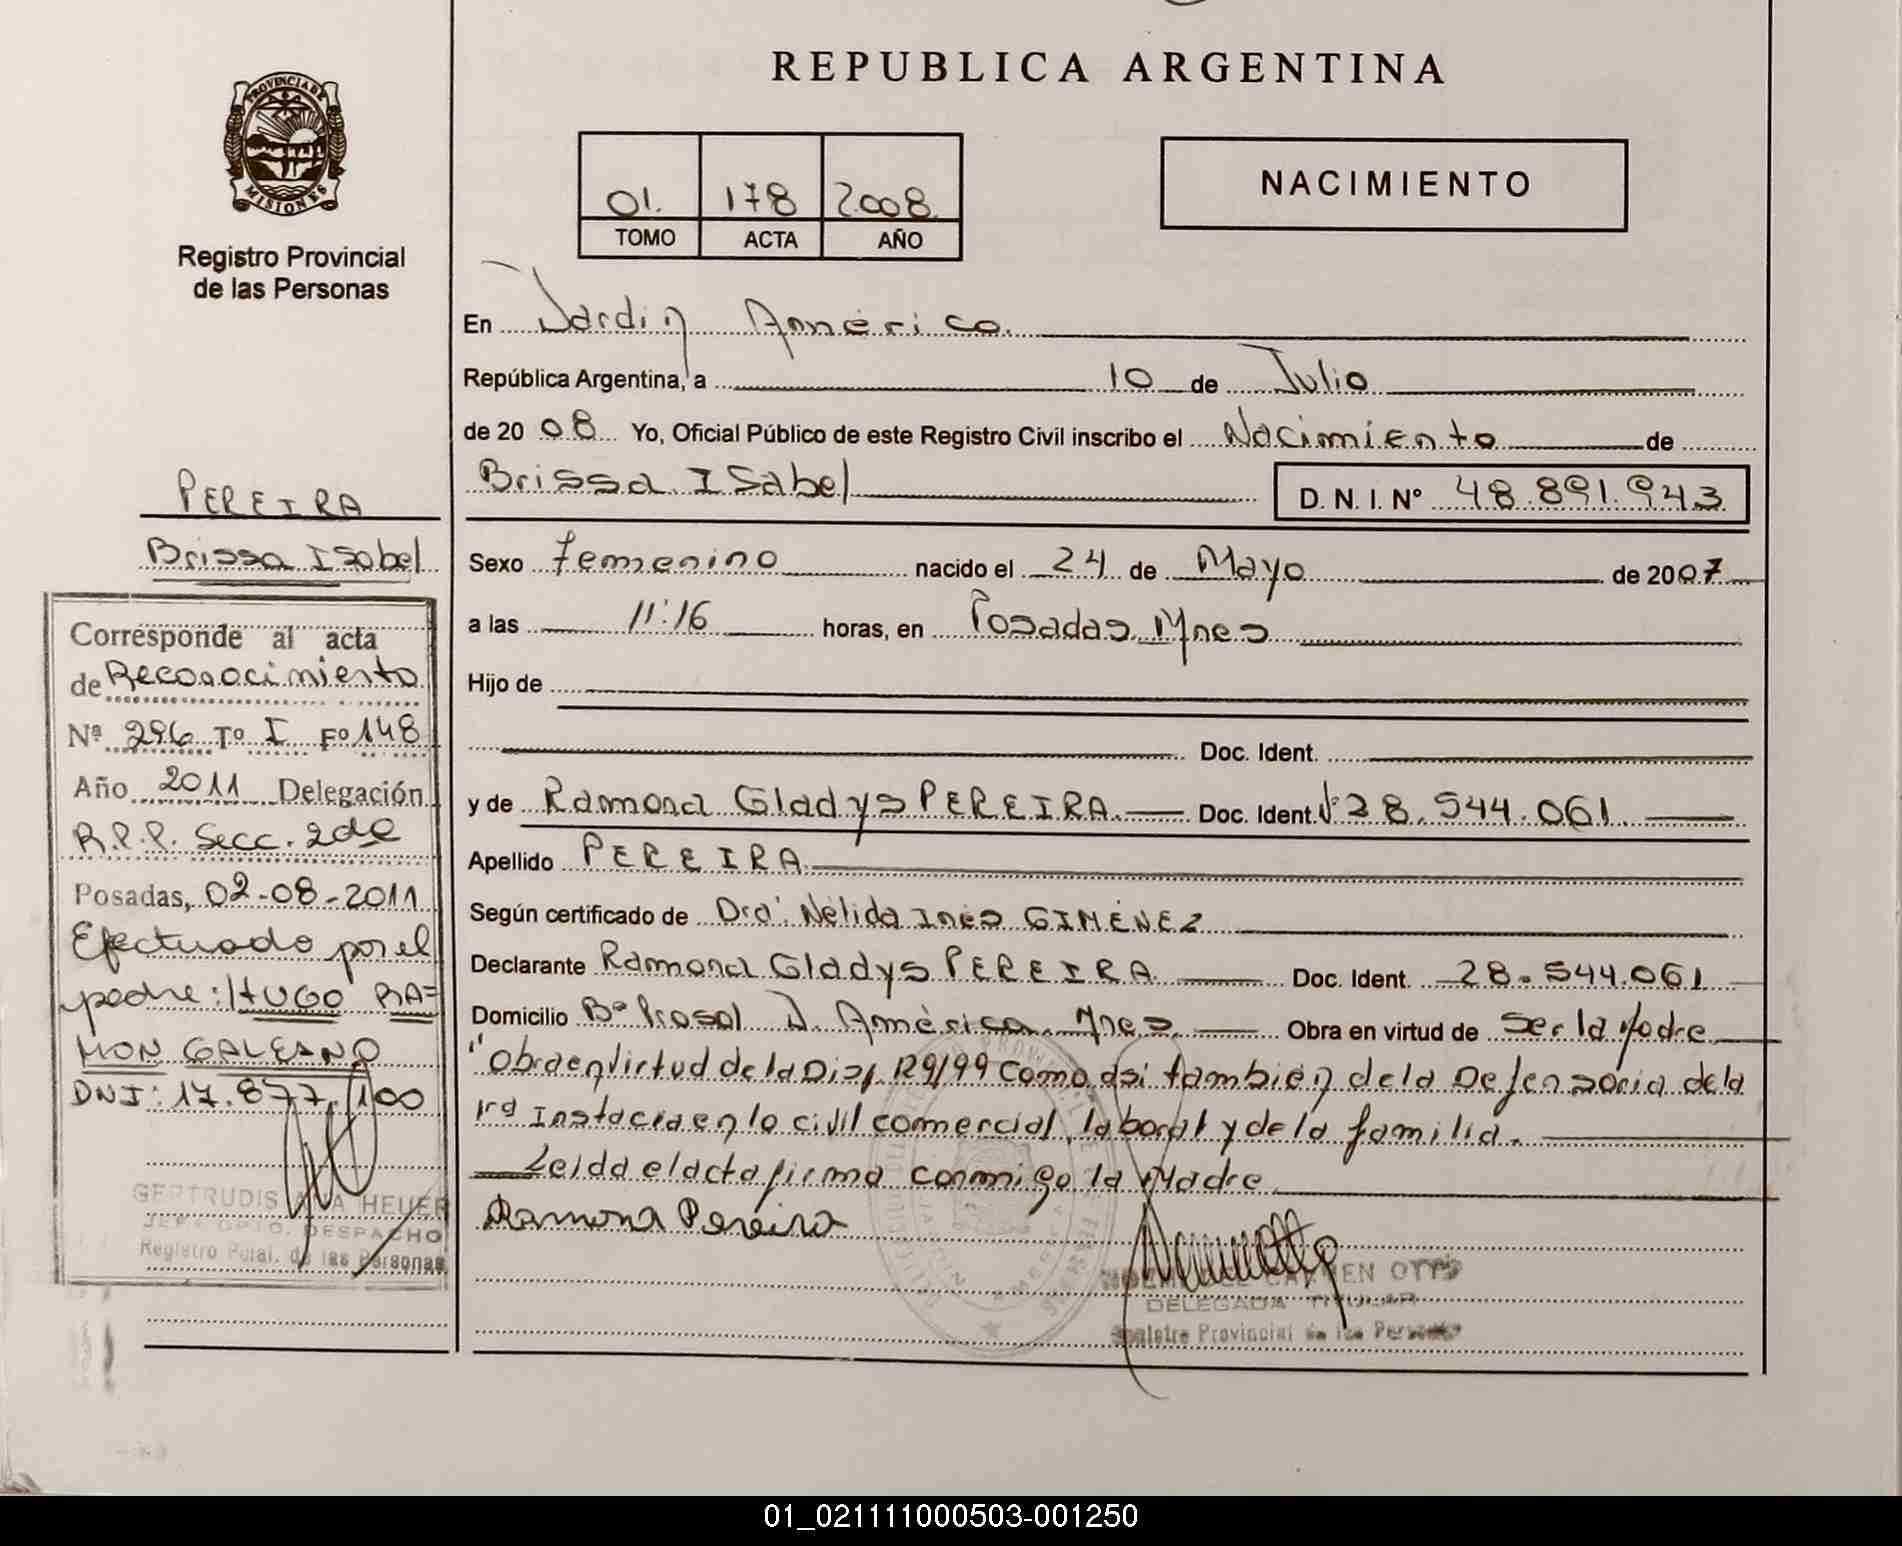 REPUBLICA ARGENTINA
PROVINCIA DE
MISIONES
Registro Provincial
de las Personas
01. 178 2008
TOMO ACTA AÑO
NACIMIENTO
En Jardin América.
República Argentina, a 10 de Julio
de 20 08 Yo, Oficial Público de este Registro Civil inscribo el Nacimiento de
Brissa Isabel
D. N. I. Nº 48.891.943
Sexo femenino nacido el 24 de Mayo de 2007
a las 11:16 horas, en Posadas Mnes
Hijo de
Doc. Ident.
y de Ramona Gladys PEREIRA Doc. Ident. Nº 28.544.061.
Apellido PEREIRA
Según certificado de Dra. Nélida Inés GIMÉNEZ
Declarante Ramona Gladys PEREIRA Doc. Ident. 28.544.061
Domicilio Bº Prosol J. América. Mnes. Obra en virtud de Ser la Madre
"Obra en virtud de la Disp. 129/99 Como así también de la Defensoria de la
1ra Instacia en lo civil comercial, laboral y de la familia.
Leida el acta firma conmigo la Madre
Ramona Pereira
CARMEN OTTO
DELEGADA TITULAR
Registro Provincial de las Personas
PEREIRA
Brissa Isabel
Corresponde al acta
de Reconocimiento
Nº 296 Tº I Fº 148
Año 2011 Delegación
R.P.P. Secc. 2da
Posadas, 02-08-2011
Efectuado por el
padre: HUGO RA=
MON GALEANO
DNI: 17.877.100
GERTRUDIS ANA HEUER
JEFE DPTO. DESPACHO
Registro Pcial. de las Personas
01_021111000503-001250